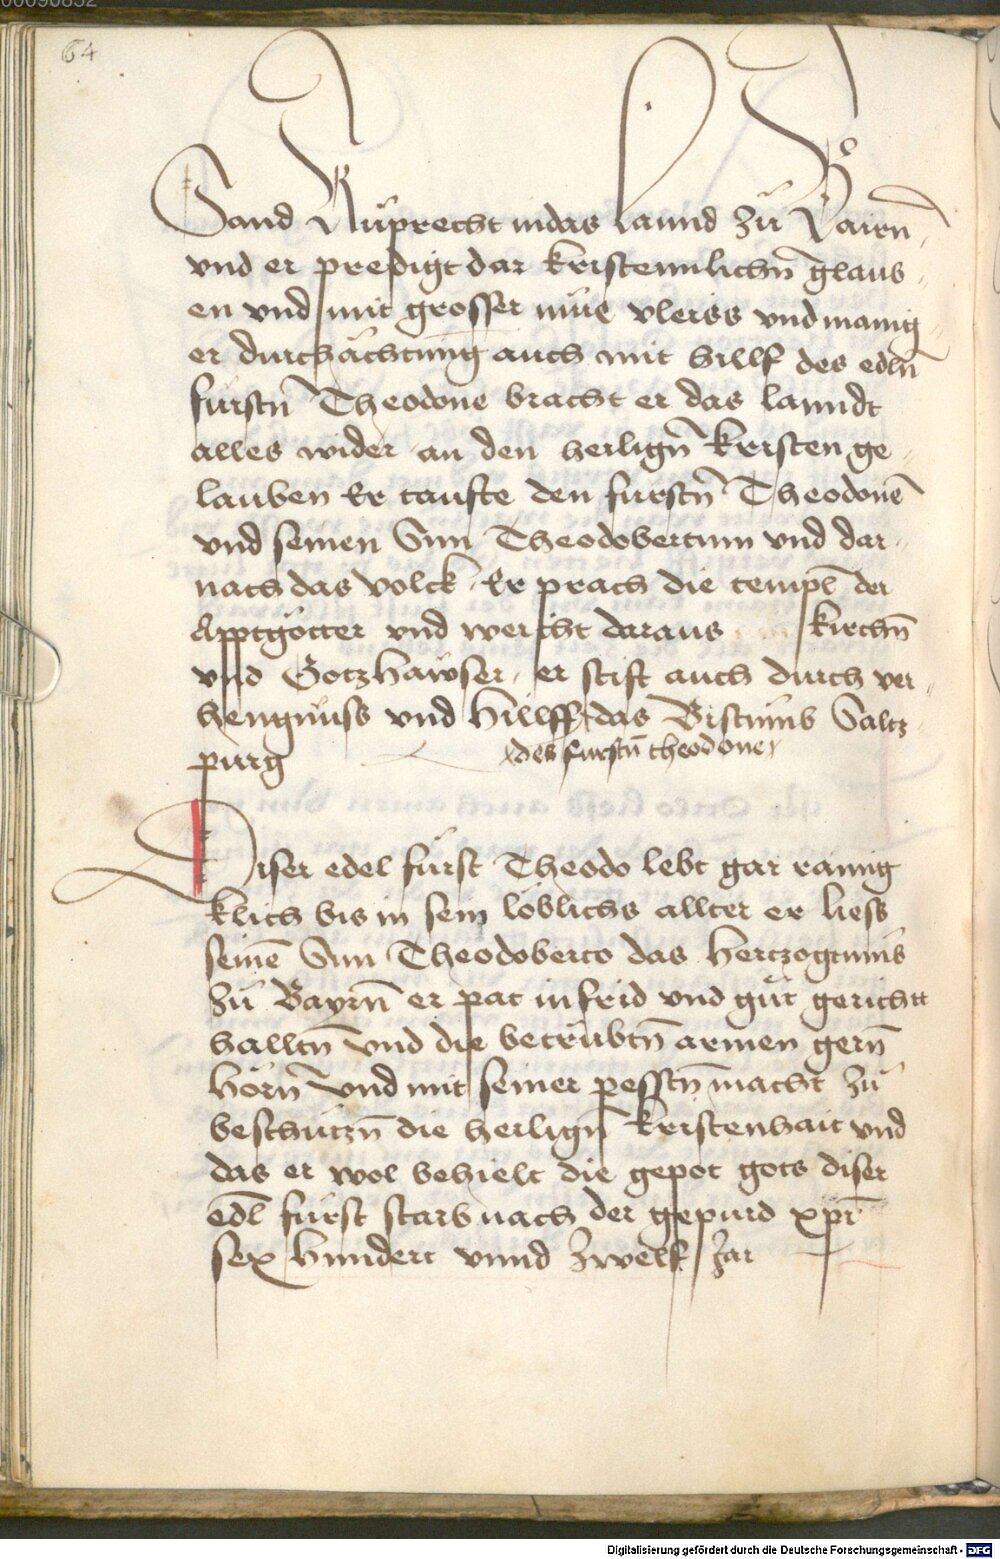 64
Sand Rŭprecht indas lannd zŭ Bairn̄
vnd er predigt dar kristennlichn̄ glaub
en vnd mit grosser mŭe vleiss vnd manig
er durchächtung auch mit hillf des edln̄
fŭrstn̄ Theodone bracht er das lanndt
alles wider an den heilign̄ kristen ge
lauben Er taufte den furstn̄ Theodonē
vnd seinen Sun Theodobertum vnd dar
nach das volck Er prach die templ̄ der
Apptgötter vnd weicht daraus kirchn̄
vnd Gotzhaẅser er stift auch durch ver
hengnŭss vnd hillff das Bistumb Saltz
purg
des furstn̄ theodone
Diser edel fŭrst Theodo lebt gar rainig
klich bis in sein löblichs allter er liess
seinē Sun Theodoberto das hertzogtumb
zŭ Bayrn̄ er pat in frid vnd gŭt gerichtt
halltn̄ vnd die betrŭbtn̄ armen gern̄
hörn̄ vnd mit seiner pesstn̄ macht zŭ
beschützn̄ die heilign̄ kristenhait vnd
das er wol behielt die gepot gots diser
edl̄ fŭrst starb nach der gepurd xpī
sex hundert vnnd zwelf jar
Digitalisierung gefördert durch die Deutsche Forschungsgemeinschaft - DFG